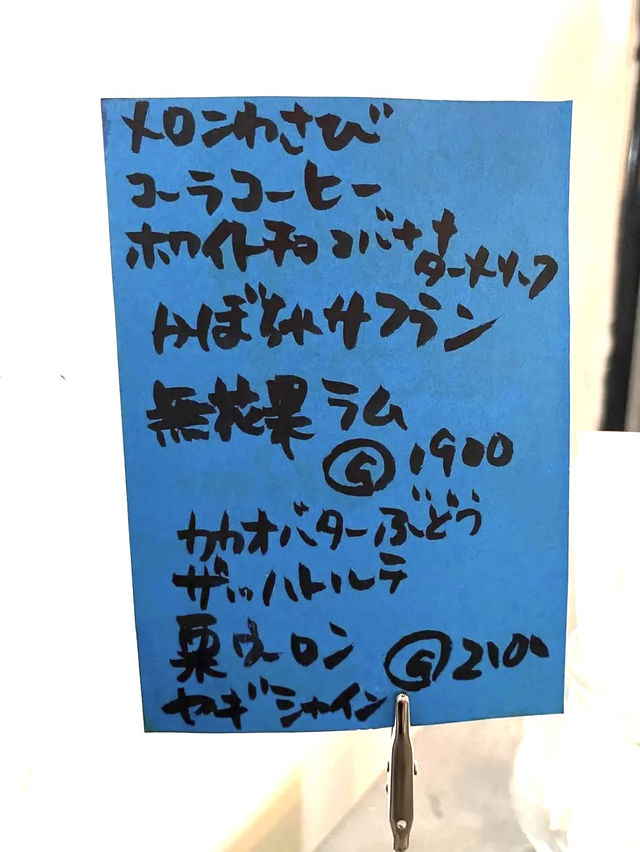 メロンわさび
コーラコーヒー
ホワイトチョコバナナ
ターメリック
かぼちゃサフラン
無花果ラム
Ⓖ 1900
カカオバターぶどう
ザッハトルテ
栗ウーロン Ⓖ 2100
ヤギシャイン